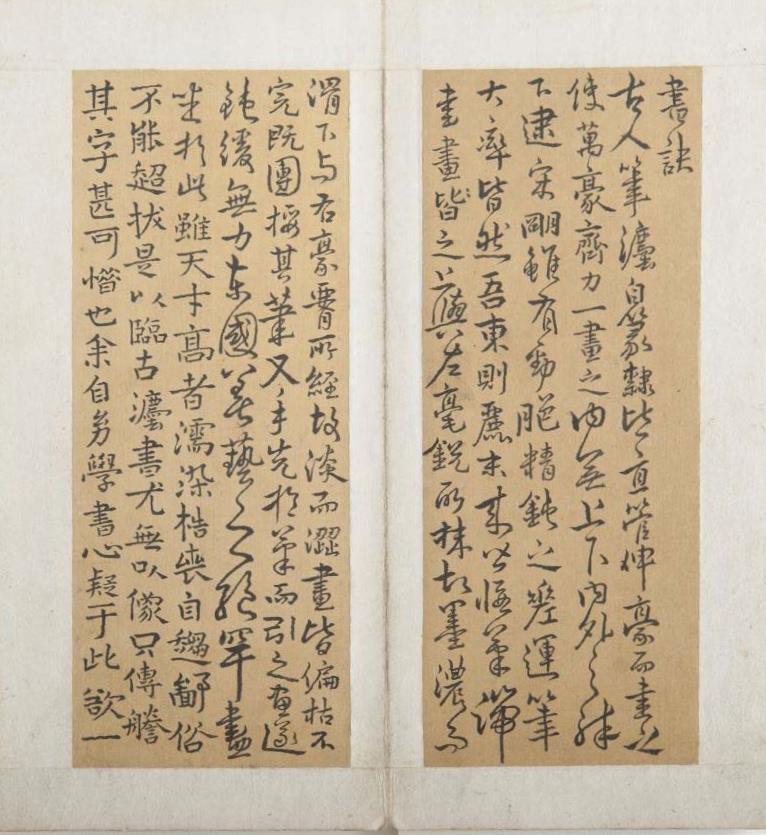 書訣
古人筆灋自篆隸比〻直管伸豪而書之
使萬豪齊力一畫之內無上下內外之殊
下逮宋明雖有勁脆精鈍之差運筆
大率皆然吾東則麗末來皆偃筆端
書畫皆之上與左毫銳所抹故墨濃而
滑下与右豪腰所經故淡而澀畫皆偏枯不
完既團捼其筆又手先於筆而引之畫遂
鈍緩無力東國善藝之絶罕盡
坐於此雖天才高者濡染梏喪自趨鄙俗
不能超拔是以臨古灋書尤無以儗只傳謄
其字甚可惜也余自幼學書心疑于此欲一